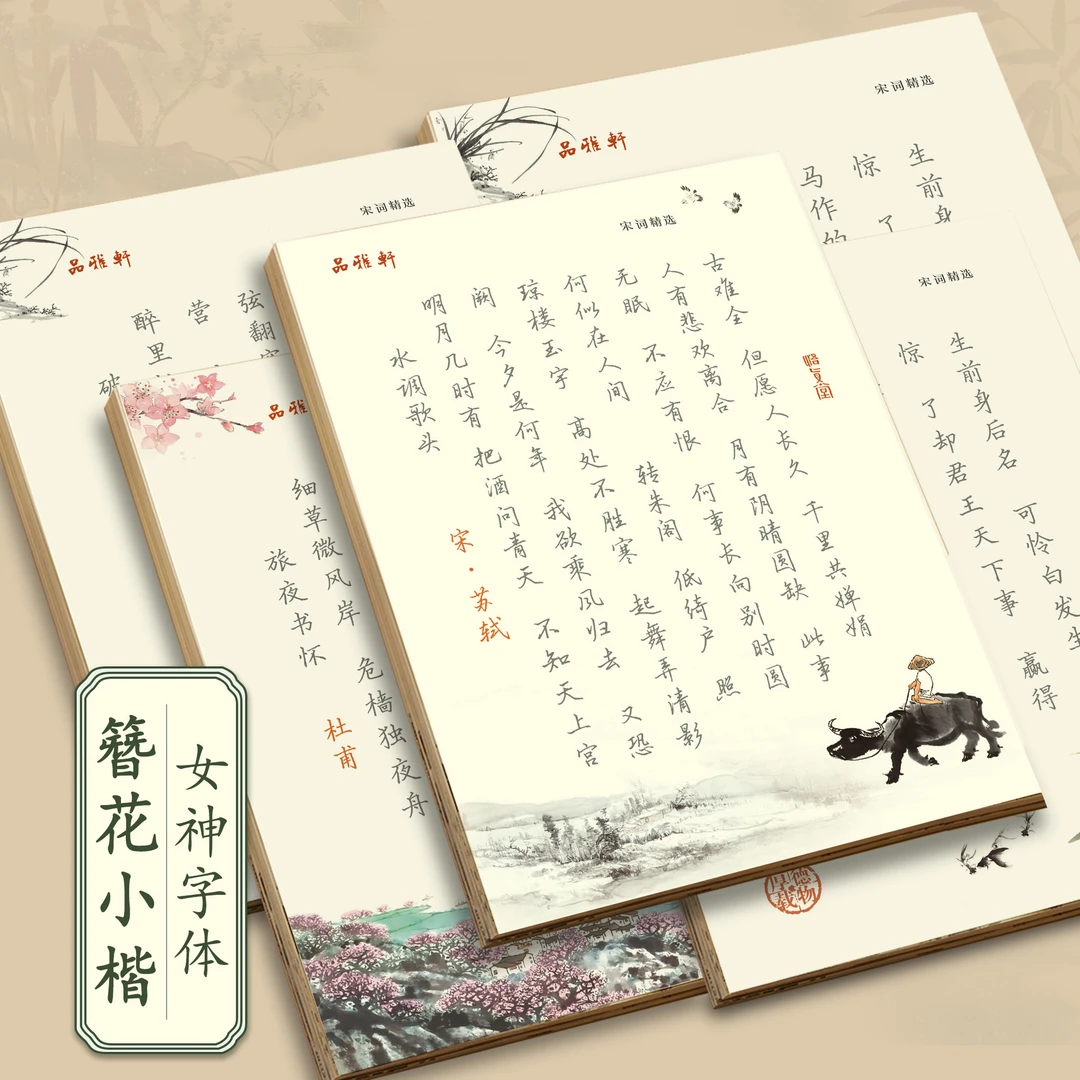 宋词精选
品雅軒
马作的
惊 了
生前身
宋词精选
品雅軒
醉里
营
弦翻
宋词精选
品雅軒
水调歌头
宋·苏轼
明月几时有 把酒问青天 不知天上宫
阙 今夕是何年 我欲乘风归去 又恐
琼楼玉宇 高处不胜寒 起舞弄清影
何似在人间 转朱阁 低绮户 照
无眠 不应有恨 何事长向别时圆
人有悲欢离合 月有阴晴圆缺 此事
古难全 但愿人长久 千里共婵娟
品雅
旅夜书怀
杜甫
细草微风岸 危樯独夜舟
宋词精选
惊 了却君王天下事 赢得
生前身后名 可怜白发生
厚德载物
簪花小楷
女神字体